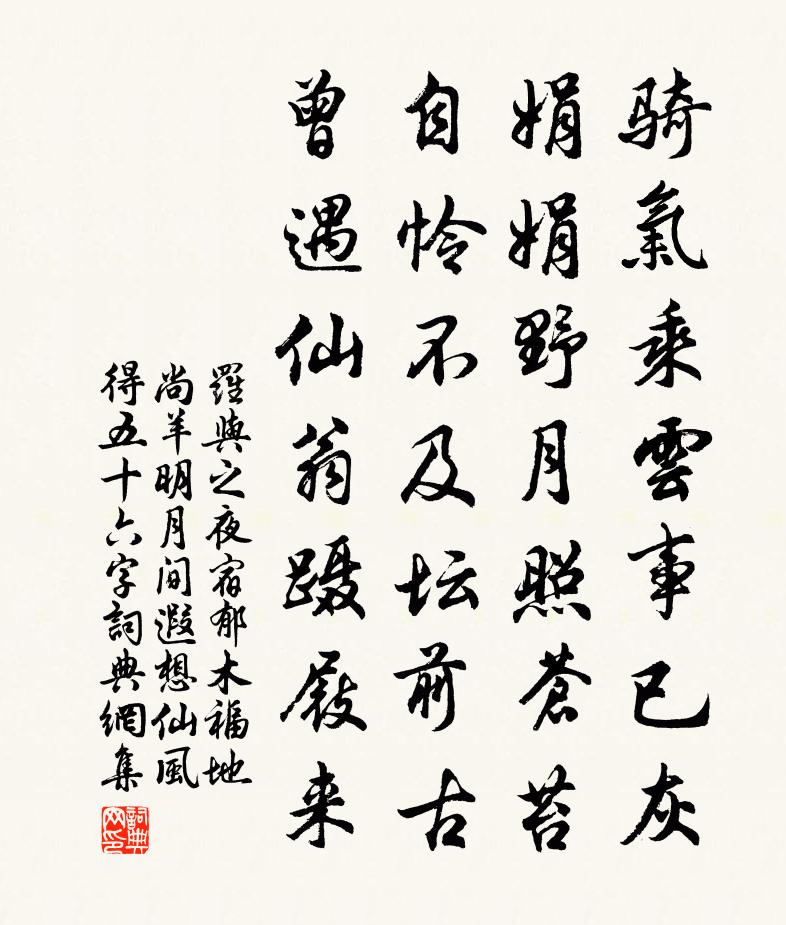 骑氣乘雲事已灰
娟娟野月照蒼苔
自怜不及坛前古
曾遇仙翁蹑屐来
羅與之夜宿郁木福地
尚羊明月间遐想仙風
得五十六字詞典網集